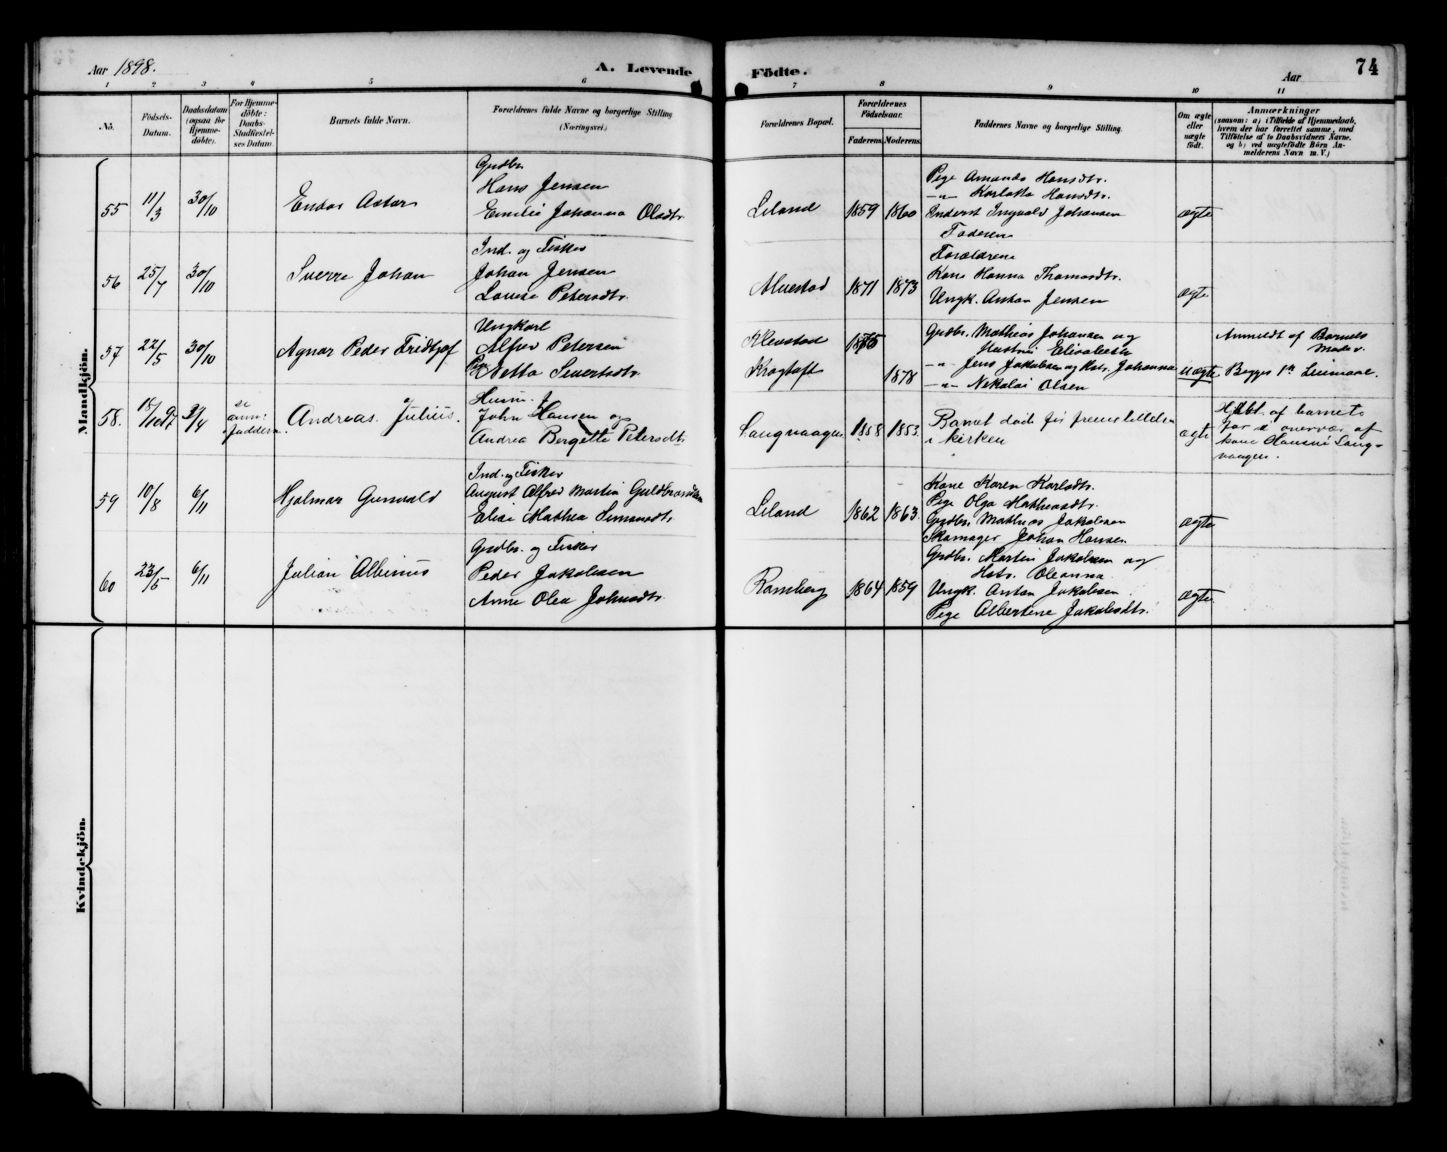 Aar 1898. A. Levende Födte. Aar 74
1 2 3 4 5 6 7 8 9 10 11
No. Födsels-Datum. Daabsdatum (ogsaa for Hjemmedöbte). For Hjemmedöbte: Daabs-Stadfæstelses Datum Barnets fulde Navn. Forældrenes fulde Navne og borgerlige Stilling (Næringsvei.) Forældrenes Bopæl. Forældrenes Födselsaar. Faderens Moderens Faddernes Navne og borgerlige Stilling. Om ægte eller uægte födt. Anmærkninger
(saasom: a) i Tilfælde af Hjemmedaab, hvem der har forrettet samme, med Tilföielse af to Daabsvidners Navne, og b) ved uægtefödte Börn Anmelderens Navn m. V.)
Mandkjön.
55 11/3 30/10 Endar Astor
Gudbr.
Hans Jensen
Emilie Johanna Olsdtr.
Leland 1859 1860
Pige Amanda Hansdtr.
-"- Karlotta Hansdtr.
Inderst Ingvald Johansen
Faderen
ægte
56 25/7 30/10 Sverre Johan
Ind. og Fisker
Johan Jensen
Lovise Petersdtr.
1871 1873
Forældrene
Kone Hanna Thomasdtr.
Ungk. Anton Jensen
ægte
57 22/5 30/10 Agnar Peder Fridtjof
Ungkarl
Alfred Petersen
Netta Sivertsdtr.
1875
1878
Gudbr. Mathias Johansen og
Hustru Elisabeth
-"- Jens Jakobsen og Hstr. Johanna
-"- Nikolai Olsen
uægte
Anmeldt af Barnets
Moder.
58. se anm: faddern. Andreas Julius.
Husm.
John Hansen og
Andrea Bergette Petersdtr.
Langvaagen 1858 1853.
Barnet døde før fremstillelsen
i kirken
ægte
Hjdbt. af barnets
far i overvær af
kone Hansine Lang-
vaagen.
59 10/8 6/11 Hjalmar Gunvald
Ind. og Fisker
August Alfred Martin Guldbrandsen
Elise Mathea Simonsdtr.
Leland 1862 1863.
Kone Karen Karlsdtr.
Pige Olga Mathiasdtr.
Gudbr. Mathias Jakobsen
Skomager Johan Hansen
ægte
60 23/5 6/11 Julian Albinus
Gudbr. og Fisker
Peder Jakobsen
Anne Olea Johnsdtr.
Ramberg 1864 1859
Gudbr. Martin Jakobsen og
Hstr. Oleanna
Ungk. Anton Jakobsen.
Pige Albertine Jakobsdtr.
ægte
Kvindekjön.